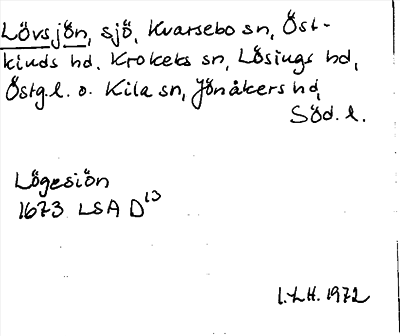 Lövsjön, sjö, Kvarsebo sn, Öst-
kinds hd. Krokeks sn, Lösings hd,
Östg.l. o. Kila sn, Jönåkers hd,
Söd. l.
Lögesiön
1673 LSA D¹³
I.L.H. 1972